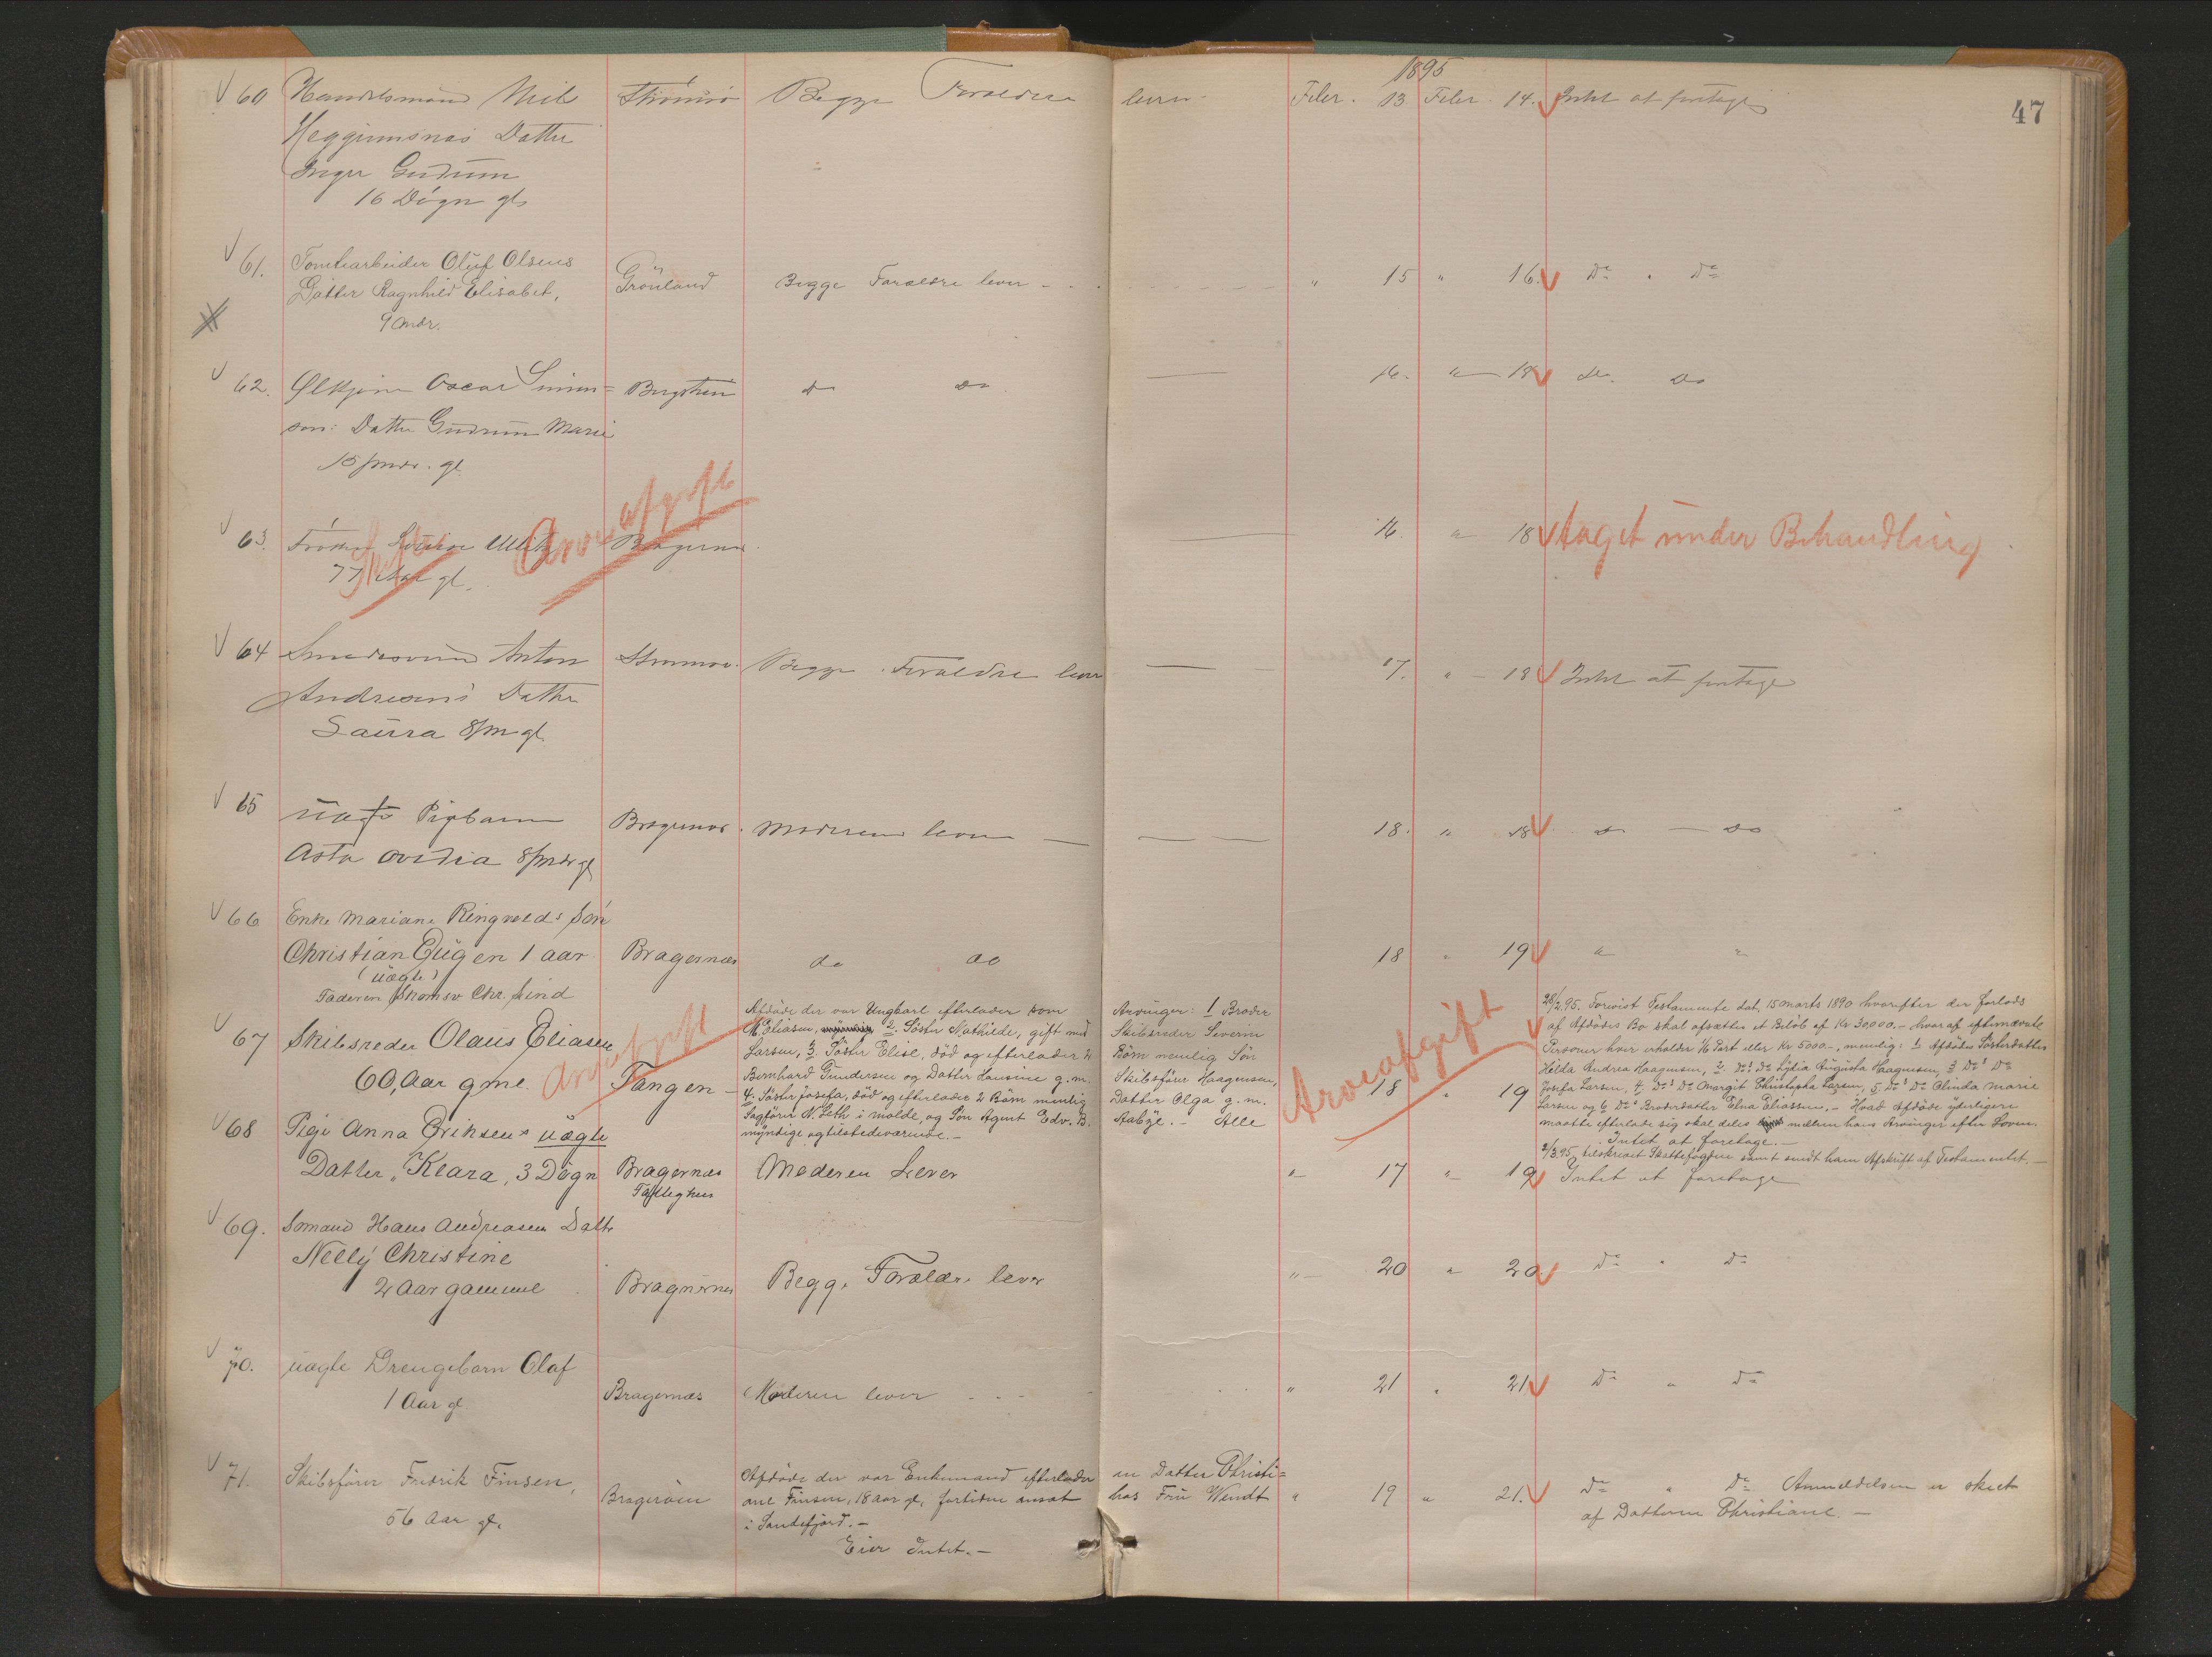 1895
47
60 Handelsmand Nils Strömsö Begge Forældre lever Febr. 13 Febr. 14. Intet at foretage
Datter
Inger Gudrun
16 Døgn gl.
61. Tomtearbeider Oluf Olsens Grönland Begge Forældre lever - . . " 15 " 16. Do " Do
Datter Ragnhild Elisabet,
9 Mdr.
62. Oscar Simen= do do 16. " 18 do. do
sen: Datter Gudrun Marie
15 Mdr. gl.
63. Frøken Louise Bragernes 16. " 18 taget under Behandling
77 Aar gl.
Skifte
Arveafgift
64 Smedesvend Anton Strømsø. Begge Forældre lever 17. " 18 Intet at foretage
Andresens Datter
Laura 8/m gl.
65 uægte Pigebarn Bragernes. Moderen lever 18. " 18 do do
Asta Ovidia 8/mdr gl
66 Enke Mariane Ringvolds Søn
Christian Eugen 1 aar Bragernæs do do 18 " 19 " "
(uægte)
Faderen Skomav Chr. Lind
67 Skibsreder Olaus Eliasen
60, Aar gml. Tangen - 18 " 19
Arveafgift
Afdøde der var Ungkarl efterlader som Arvinger: 1 Broder
M. Eliasen, myndig 2. Söster Mathilde, gift med Skibsreder Severin
Larsen, 3. Søster Elise, död og efterlader 2 Börn nemlig Søn
Bernhard Gundersen og Datter Hansine g. m. Skibsfører Haagensen,
4. Söster Josefa, død og efterlader 2 Børn nemlig Datter Olga g. m.
Sagfører N. Leth i Molde, og Søn Agent Edv. B. Aabye. - Alle
myndige og tilstedeværende. -
Arveafgift
28/2.95. Forevist Testamente dat. 15 Marts 1890 hvorefter der forlods
af Afdødes Bo skal afsættes et Beløb af Kr 30,000.- hvoraf efternævnte
Personer hver erholder 1/6 Part eller Kr 5000.-, nemlig: 1 Afdødes Søsterdatter
Hilda Andrea Haagensen, 2. Do Do Lydia Augusta Haagensen, 3 Do Do
Josefa Larsen, 4. Do Do Margit Larsen, 5 Do Do Olinda Marie
Larsen og 6 Do Broderdatter Elna Eliassen. - Hvad Afdøde yderligere
maatte efterlade sig skal deles mellem hans Arvinger efter Loven.
Intet at foretage. -
2/3.95 tilskrevet Skattefogden samt sendt ham Afskrift af Testamentet. -
68 Pige Anna Eriksens uægte
Datter "Klara, 3 Døgn Bragernæs Moderen Lever " 17 " 19 Intet at foretage
Fattighus
69. Sømand Hans Andreasens Datter
Nelly Christine
2 Aar gammel Bragernes Begge Forældre lever " 20 " 20 Do " Do
70. uægte Drengebarn Olaf
1 Aar gl Bragernæs Moderen lever - - - " 21 " 21 Do " Do
71. Skibsfører Fredrik Finsen, Bragerøen " 19 " 21. Do " Do Anmeldelsen er skeet
56 Aar gl. af Datteren Christiane. -
Afdøde der var Enkemand efterlader en Datter Christi=
ane Finsen, 18 Aar gl, fortiden ansat hos Fru Wendt
i Sandefjord. -
Eier Intet. -